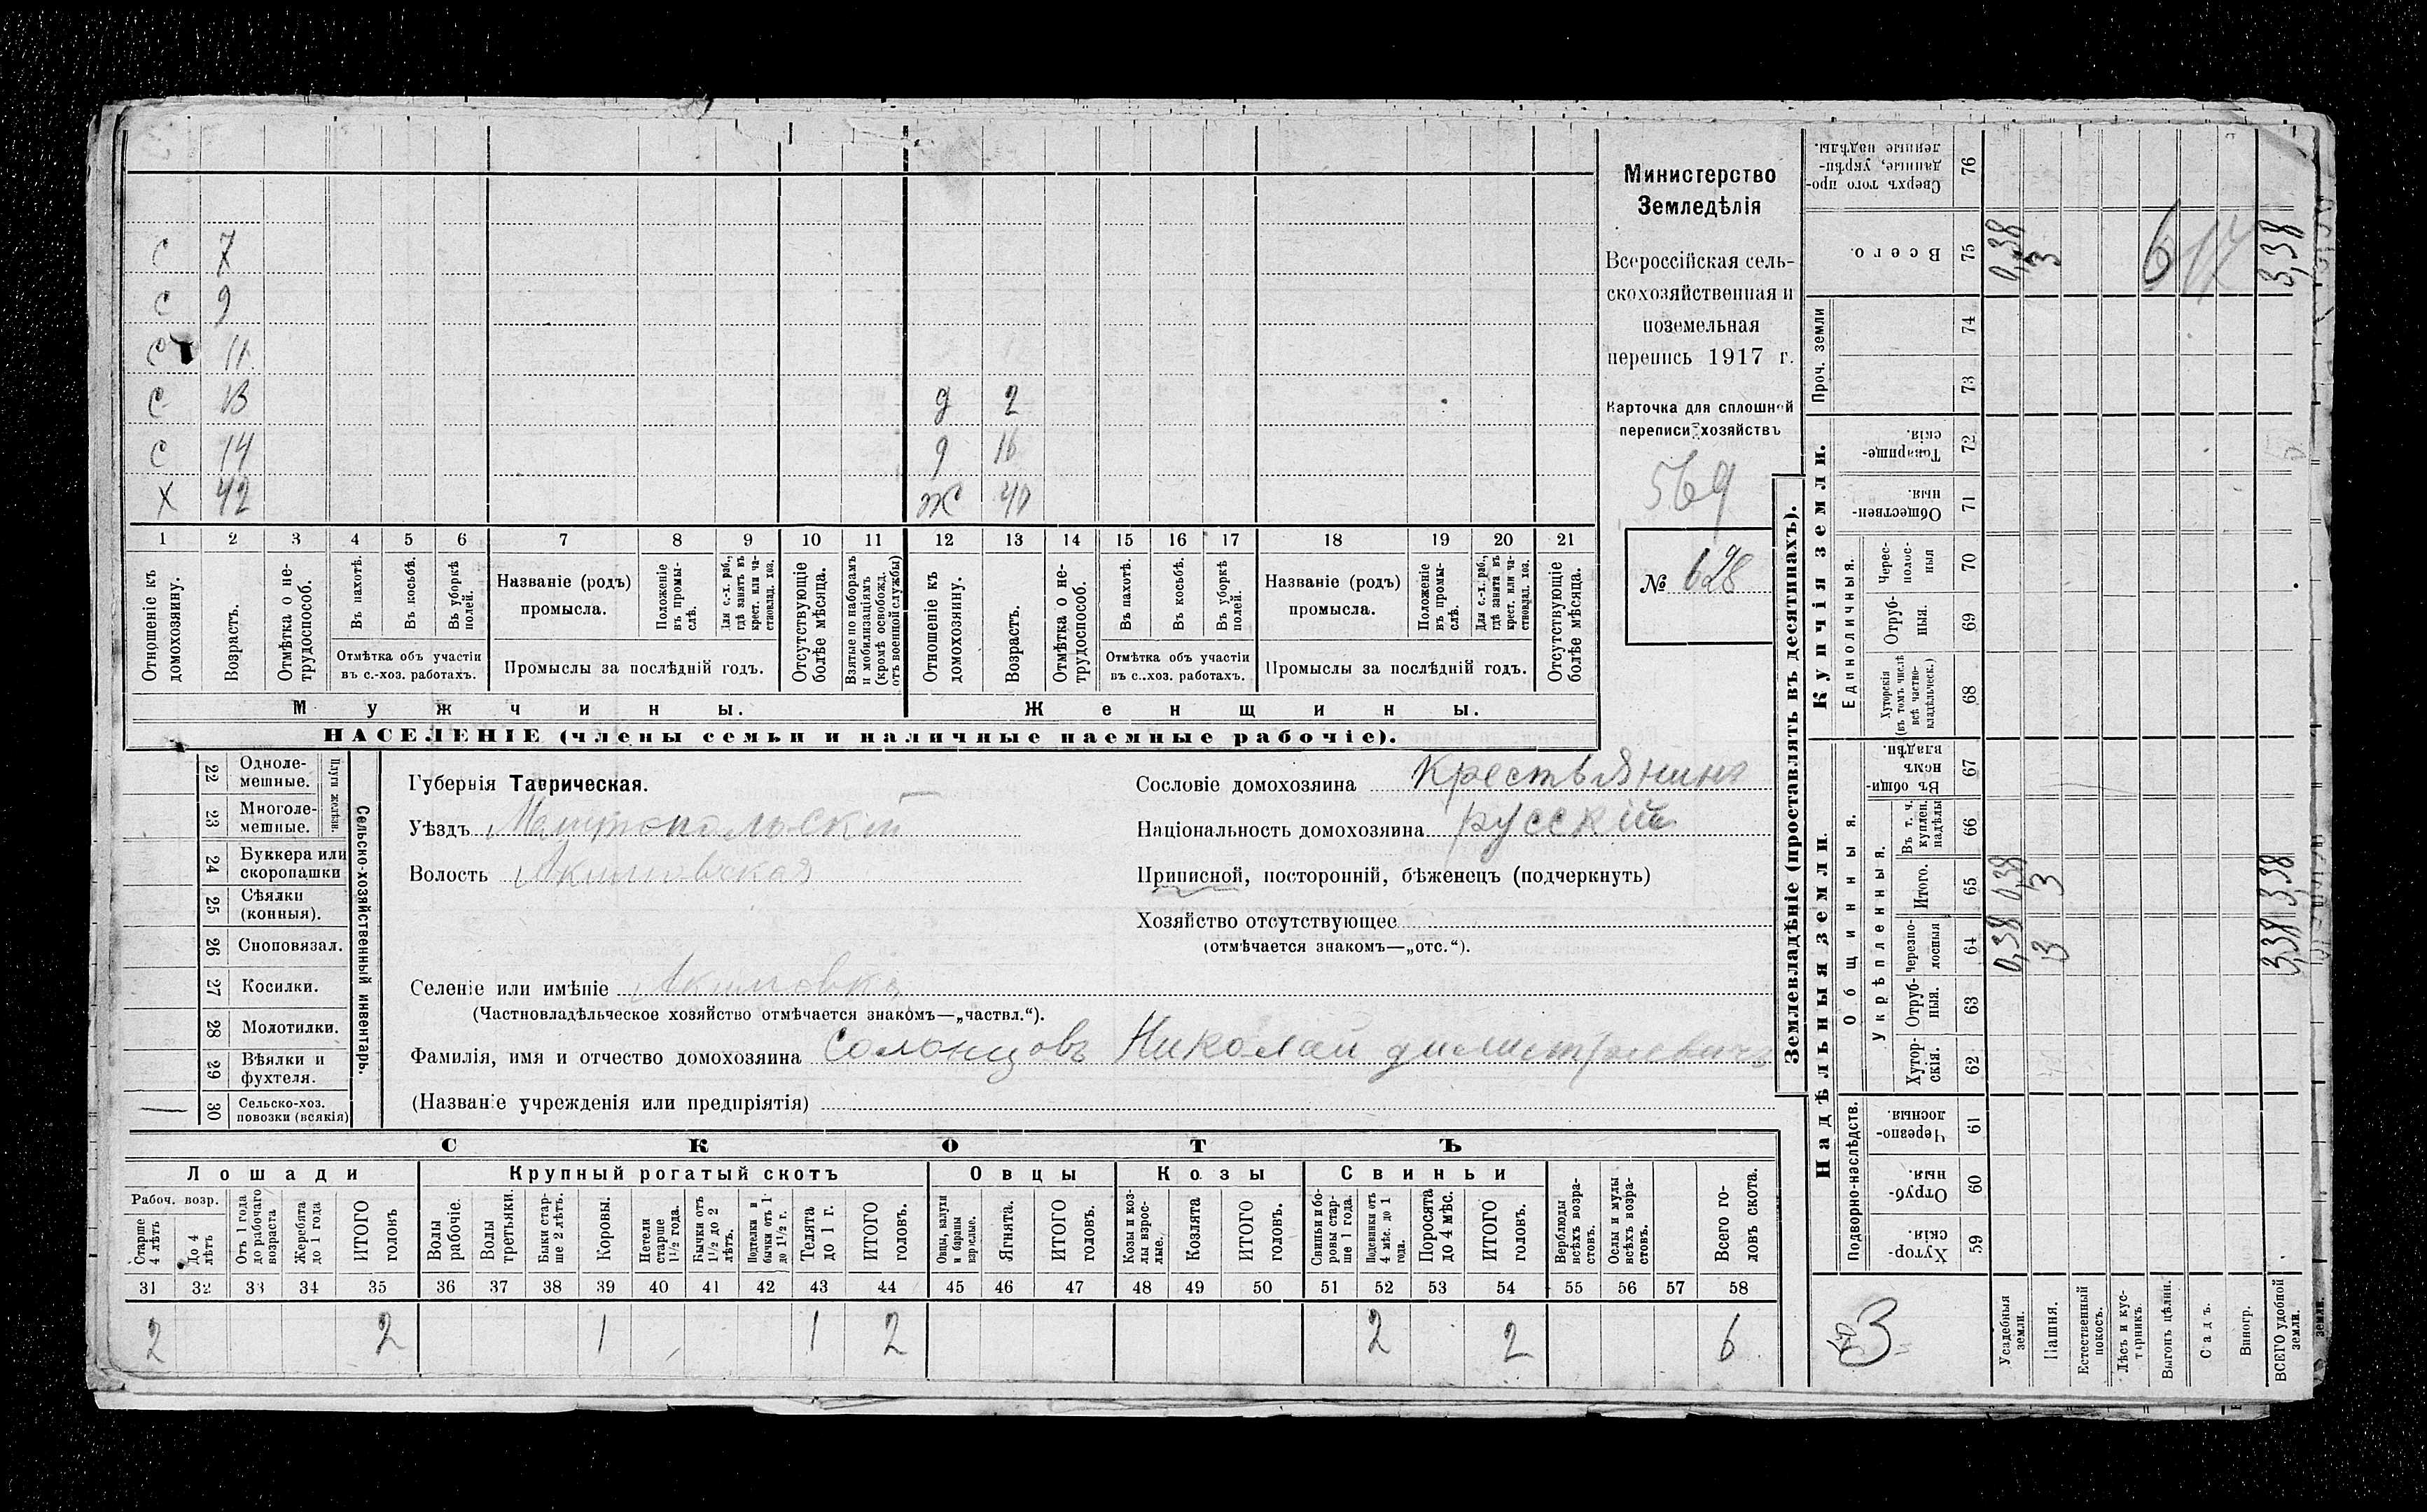 С 7
С 9
С 11
С 13 д 2
С 14 д 16
Х 42 Ж 40
1 2 3 4 5 6 7 8 9 10 11 12 13 14 15 16 17 18 19 20 21
Отношеніе къ домохозяину.
Возрастъ.
Отмѣтка о не-трудоспособ.
Въ пахотѣ.
Въ косьбѣ.
Въ уборкѣ полей.
Отмѣтка объ участіи въ с.-хоз. работахъ.
Названіе (родъ) промысла.
Положеніе въ промы-слѣ.
Для с.-х. раб., гдѣ занятъ въ крест. или ча-стновлад. хоз.
Промыслы за послѣдній годъ.
Отсутствующіе болѣе мѣсяца.
Взятые по наборамъ и мобилизаціямъ (кромѣ освобожд. отъ военной службы)
Отношеніе къ домохозяину.
Возрастъ.
Отмѣтка о не-трудоспособ.
Въ пахотѣ.
Въ косьбѣ.
Въ уборкѣ полей.
Отмѣтка объ участіи въ с.-хоз. работахъ.
Названіе (родъ) промысла.
Положеніе въ промы-слѣ.
Для с.-х. раб., гдѣ занята въ крест. или ча-стновлад. хоз.
Промыслы за послѣдній годъ.
Отсутствующіе болѣе мѣсяца.
Мужчины. Женщины.
НАСЕЛЕНІЕ (члены семьи и наличные наемные рабочіе).
Министерство
Земледѣлія
Всероссійская сель-
скохозяйственная и
поземельная
перепись 1917 г.
Карточка для сплошной
переписи хозяйствъ
569
№ 628
22 Одноле-мешные.
23 Многоле-мешные.
Плуги желѣзн.
24 Буккера или скоропашки
25 Сѣялки (конныя).
26 Сноповязал.
27 Косилки.
28 Молотилки.
29 Вѣялки и фухтеля.
30 Сельско-хоз. повозки (всякія) —
Сельско-хозяйственный инвентарь.
Губернія Таврическая.
Уѣздъ Мелитопольскій
Волость Акимовская
Сословіе домохозяина Крестьянинъ
Національность домохозяина русскій
Приписной, посторонній, бѣженецъ (подчеркнуть)
Хозяйство отсутствующее
(отмѣчается знакомъ—„отс.“).
Селеніе или имѣніе Акимовка
(Частновладѣльческое хозяйство отмѣчается знакомъ—„частвл.“).
Фамилія, имя и отчество домохозяина Солонцовъ Николай Димитріевичъ
(Названіе учрежденія или предпріятія)
СКОТЪ
Лошади Крупный рогатый скотъ Овцы Козы Свиньи
Рабоч. возр.
Старше 4 лѣтъ
До 4 лѣтъ
Отъ 1 года до рабочаго возраста
Жеребята до 1 года
ИТОГО головъ
Волы рабочіе.
Волы третьяки.
Быки стар-ше 2 лѣтъ.
Коровы.
Нетели старше 1½ года.
Бычки отъ 1½ до 2 лѣтъ.
Подтелки и бычки отъ 1 до 1½ г.
Телята до 1 г.
ИТОГО головъ.
Овцы, валухи и бараны взрослые.
Ягнята.
ИТОГО головъ.
Козы и коз-лы взрос-лые.
Козлята
ИТОГО головъ.
Свиньи и бо-ровы стар-ше 1 года.
Подсвинки отъ 4 мѣс. до 1 года.
Поросята до 4 мѣс.
ИТОГО головъ.
Верблюды всѣхъ возра-стовъ.
Ослы и мулы всѣхъ возра-стовъ.
Всего го-ловъ скота.
31 32 33 34 35 36 37 38 39 40 41 42 43 44 45 46 47 48 49 50 51 52 53 54 55 56 57 58
2 2 1 1 2 2 2 6
Землевладѣніе (проставлять въ десятинахъ).
Надѣльныя земли. Купчія земли.
Сверхъ того про-данные, укрѣп-ленные надѣлы. 76
Всего. 75 0,38 3 3,38
6
Проч. земли 74 73
Товарище-скія. 72
Обществен-ныя. 71
Единоличныя.
Черес-полос-ныя 70
Отруб-ныя. 69
Хуторскія (въ томъ числѣ всѣ частно-владѣльческ.) 68
Въ общин-номъ владѣн. 67
Общинныя.
Укрѣпленныя.
Въ т. ч. куплен. надѣлы 66
Итого. 65 0,38 3 3,38
Черезпо-лосныя 64 0,38 3 3,38
Отруб-ныя. 63
Хутор-скія. 62
Подворно-наслѣдств.
Черезпо-лосныя. 61
Отруб-ныя. 60
Хутор-скія. 59
3
Усадебныя земли.
Пашня.
Естественный покосъ.
Лѣсъ и кус-тарникъ.
Выгонъ цѣлин.
Садъ.
Виногр.
ВСЕГО удобной земли.
земли.